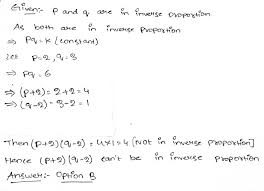 Given:- P and q are in inverse proportion.
As both are in inverse proportion
⇒ Pq = K (constant)
let P=2, q=3
⇒ Pq = 6
⇒ (P+2) = 2+2 = 4
⇒ (q-2) = 3-2 = 1
Then (P+2)(q-2) = 4×1 = 4 [Not in inverse proportion]
Hence (P+2)(q-2) can't be in inverse proportion
Answer:- Option B